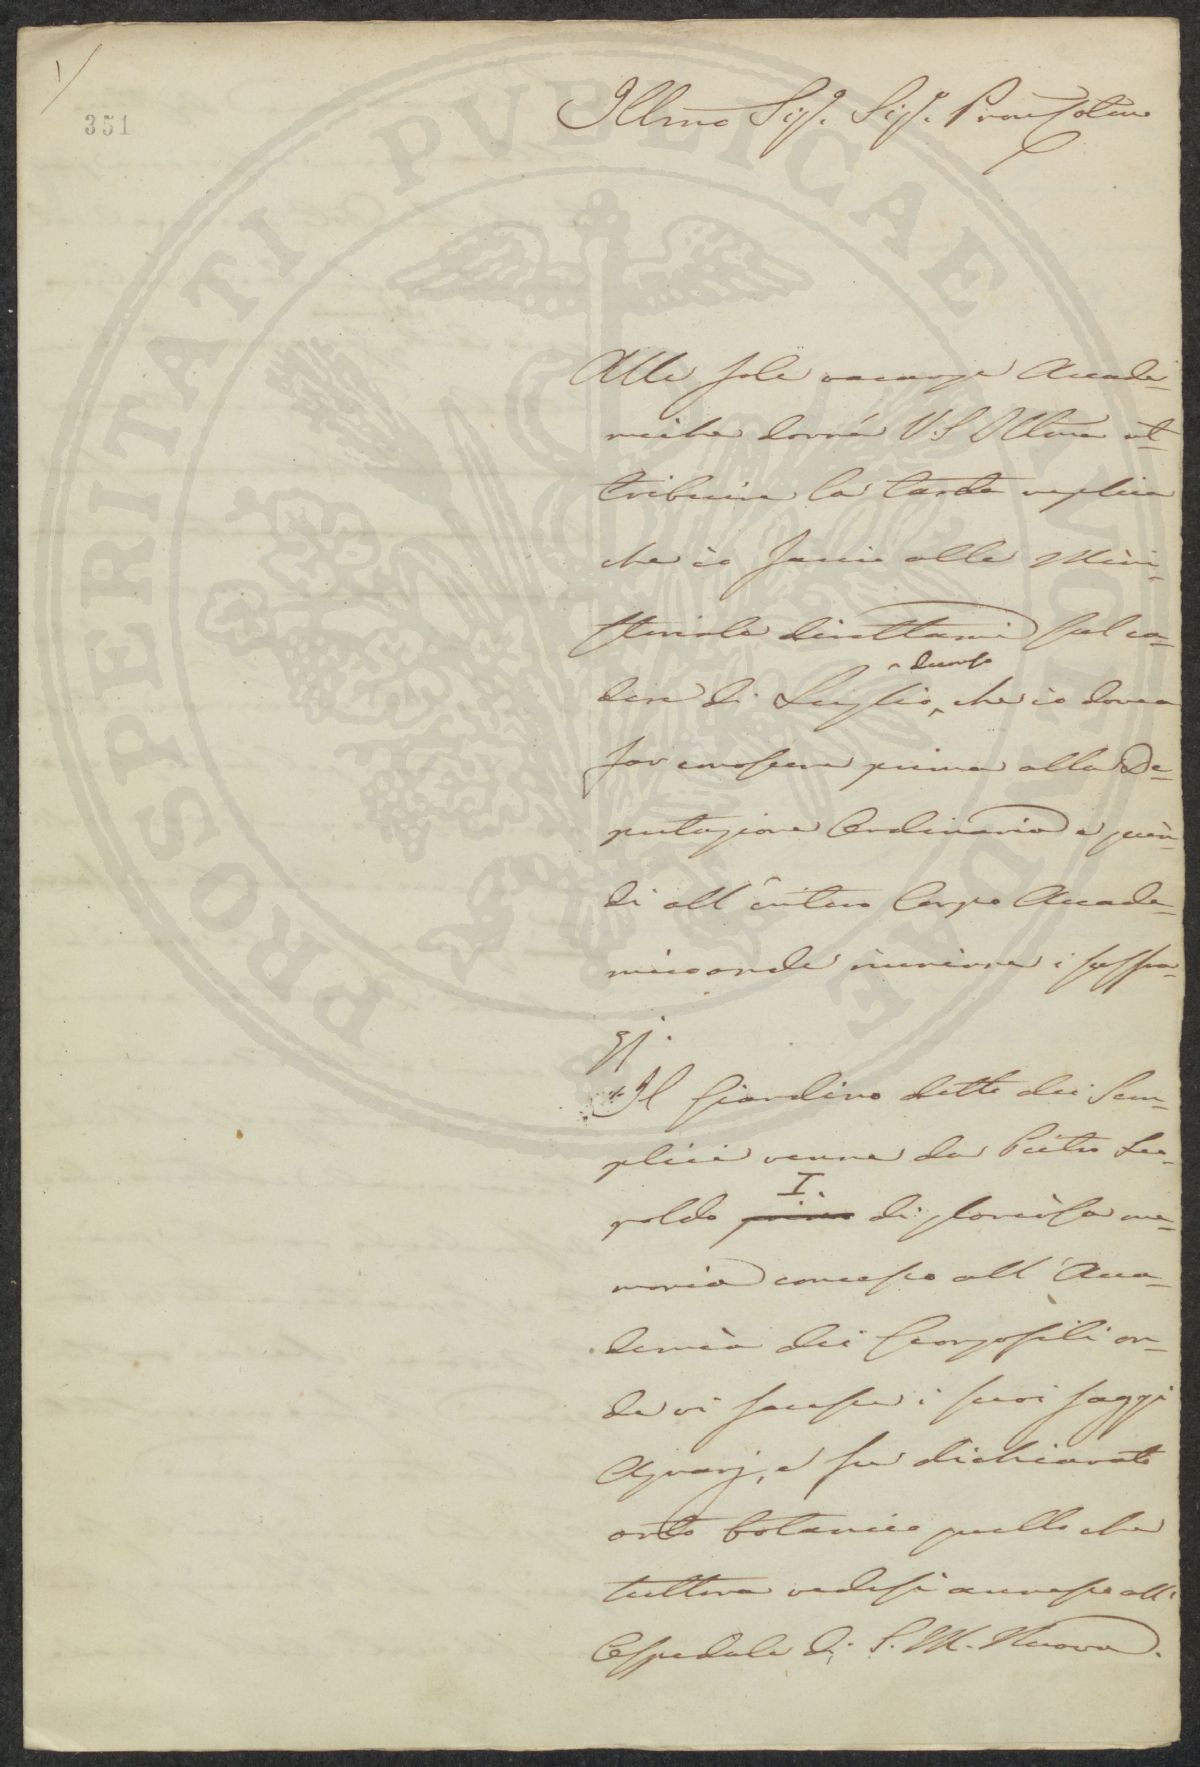 1/
351
Illmo Sig.r Sig.r Pron Colmo
Alle sole vacanze Accade-
miche dovrà V.S Illma at-
tribuire la tarda replica
che io faccio alla Mini-
steriale direttami sul ca-
dere di Luglio, decorso che io dovea
far conoscere prima alla De-
putazione Ordinaria e quin-
di all'intero Corpo Accade-
mico onde riunirne i suffra-
gj.
Il Giardino detto dei Sem-
plici venne da Pietro Leo-
poldo primo I. di gloriosa me-
moria concesso all'Acca-
demia dei Georgofili on-
de vi facesse i suoi saggi
Agrarj, e fu dichiarato
orto botanico quello che
tuttora vedesi annesso all'
Ospedale di S. M. Nuova.
PROSPERITATI PUBLICAE AUGENDAE